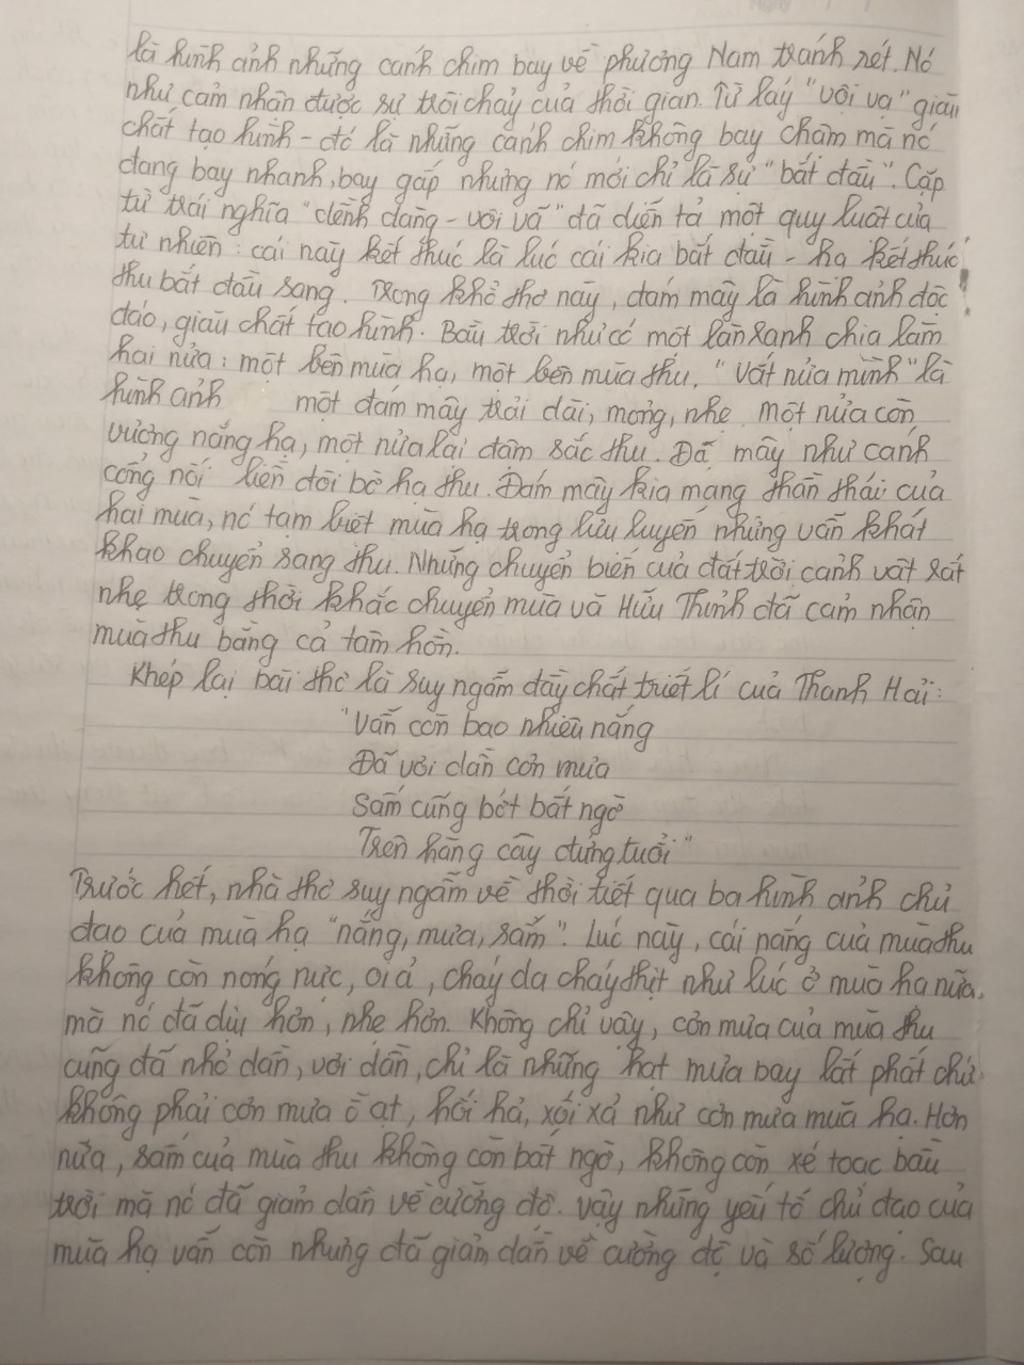 là hình ảnh những cánh chim bay về phương Nam tránh rét. Nó
như cảm nhận được sự trôi chảy của thời gian. Từ láy "vội vạ" giàu
chất tạo hình - đó là những cánh chim không bay chậm mà nó
đang bay nhanh, bay gấp nhưng nó mới chỉ là sự "bắt đầu". Cặp
từ trái nghĩa "dềnh dàng - vội vã" đã diễn tả một quy luật của
tự nhiên: cái này kết thúc là lúc cái kia bắt đầu - hạ kết thúc
thu bắt đầu sang. Trong khổ thơ này, đám mây là hình ảnh độc
đáo, giàu chất tạo hình. Bầu trời như có một lằn ranh chia làm
hai nửa: một bên mùa hạ, một bên mùa thu. "Vắt nửa mình" là
hình ảnh một đám mây trải dài, mỏng, nhẹ một nửa còn
vương nắng hạ, một nửa lại đậm sắc thu. Đã mây như cánh
cổng nối liền đôi bờ hạ thu. Đám mây kia mang thần thái của
hai mùa, nó tạm biệt mùa hạ trong lưu luyến nhưng vẫn khát
khao chuyển sang thu. Những chuyển biến của đất trời, cảnh vật rất
nhẹ trong thời khắc chuyển mùa và Hữu Thỉnh đã cảm nhận
mùa thu bằng cả tâm hồn.
Khép lại bài thơ là suy ngẫm đầy chất triết lí của Thanh Hải:
"Vẫn còn bao nhiêu nắng
Đã vơi dần cơn mưa
Sấm cũng bớt bất ngờ
Trên hàng cây đứng tuổi"
Trước hết, nhà thơ suy ngẫm về thời tiết qua ba hình ảnh chủ
đạo của mùa hạ "nắng, mưa, sấm". Lúc này, cái nắng của mùa thu
không còn nóng nực, oi ả, cháy da cháy thịt như lúc ở mùa hạ nữa,
mà nó đã dịu hơn, nhẹ hơn. Không chỉ vậy, cơn mưa của mùa thu
cũng đã nhỏ dần, vơi dần, chỉ là những hạt mưa bay lất phất chứ
không phải cơn mưa ồ ạt, hối hả, xối xả như cơn mưa mùa hạ. Hơn
nữa, sấm của mùa thu không còn bất ngờ, không còn xé toạc bầu
trời mà nó đã giảm dần về cường độ. Vậy những yếu tố chủ đạo của
mùa hạ vẫn còn nhưng đã giảm dần về cường độ và số lượng. Sau